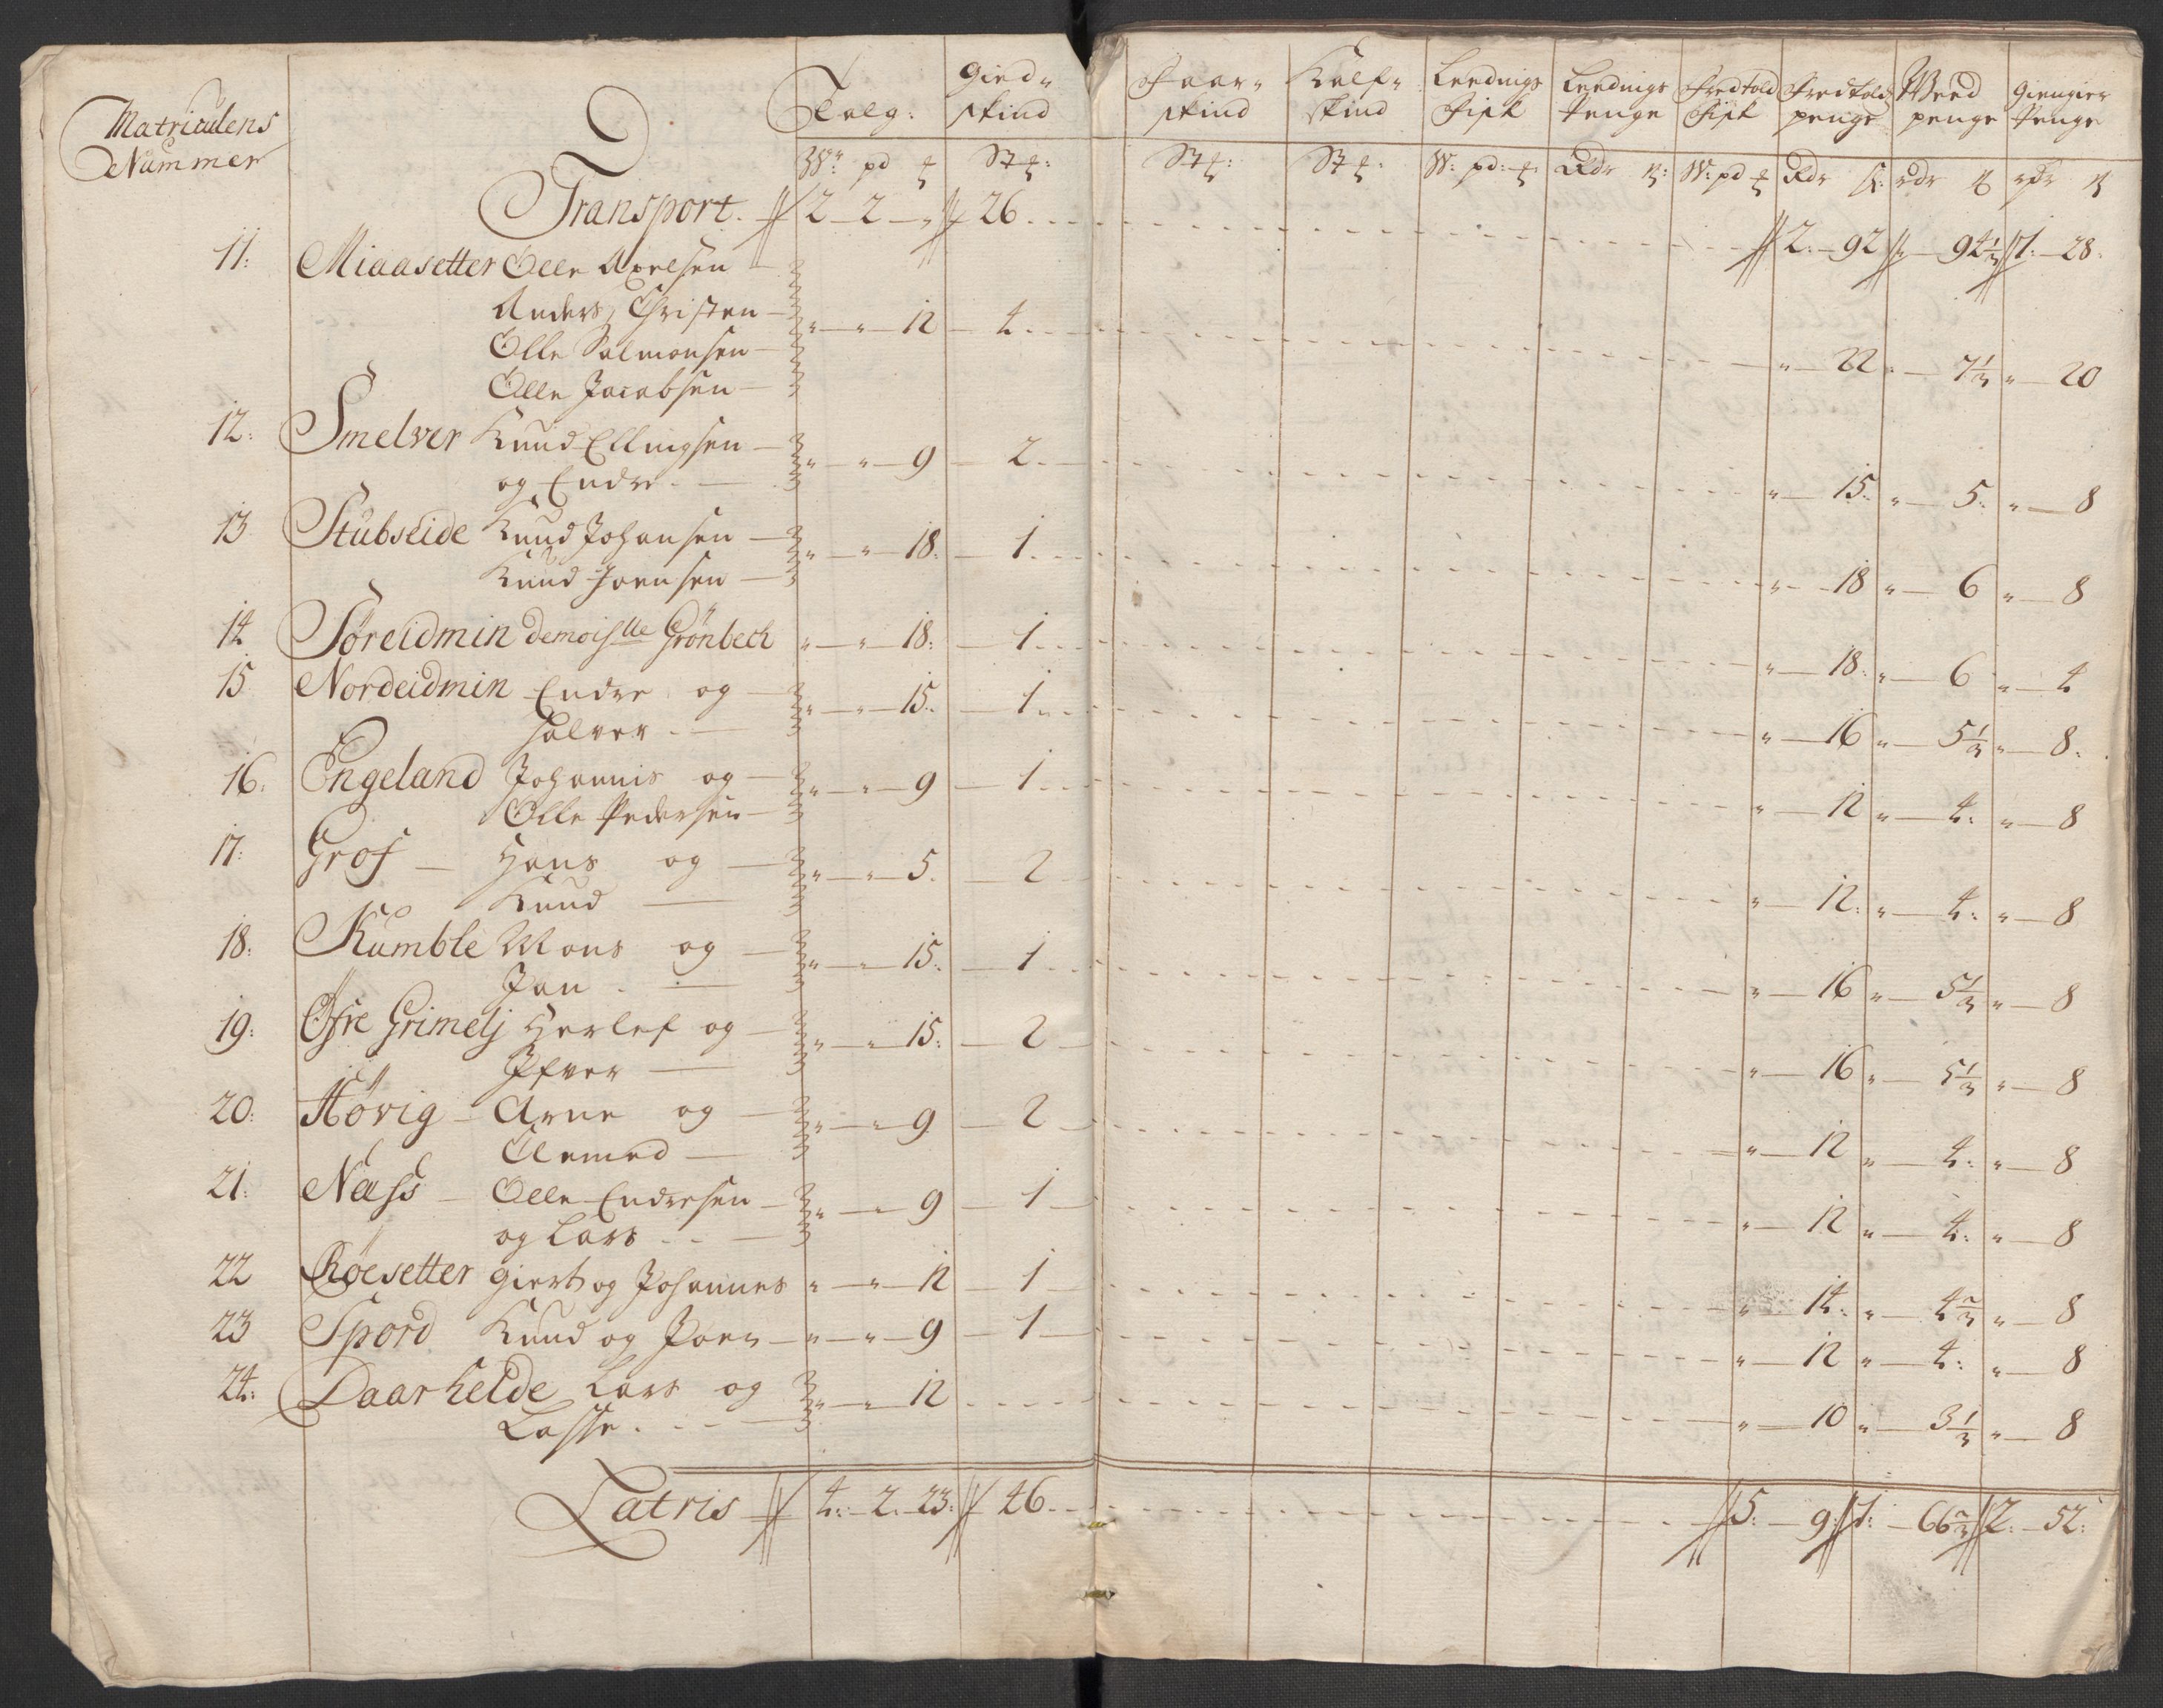 Matriculens Nummer | Talg: | Gied- skind | Faar- skind | Kalf- skind | Leedings Fisk | Leedings Penge | Fredtold Fisk | Fredtold penge | Weed penge | Giengier Penge
W: pd | St | St | St | W: pd: | Rdr | W: pd | Rdr | rdr | rdr
Transport. 2 – 2 – " 26 . . . 2. – 92 " – 94 1/3 1: – 28.
11: Miaasetter Olle Axelsen –
Anders Christen – " – " – 12 – 4 . . . " – 22 " – 7 1/3 " – 20
Olle Salmonsen –
Olle Jacobsen –
12: Smelver Knud Ellingsen – " – " – 9 – 2. . . . " – 15. " – 5. " – 8
og Endre. –
13 Stubseide Knud Johansen – " – " – 18. – 1. . . . " – 18 " – 6 " – 8
Knud Joensen –
14 Søreidmin demoislle Grönbech " – " – 18: – 1. . . . " – 18. " – 6 " – 4
15 Nordeidmin Endre og – " – " – 15. – 1 . . . " – 16 " – 5 1/3 " – 8.
Halver. –
16. Engeland Johannis og – " – " – 9 – 1 . . . " – 12 " – 4. " – 8
Olle Pedersen –
17: Grof – Hans og – " – " – 5. – 2 . . . " – 12. " – 4. " – 8
Knud –
18: Kumble Mons og – " – " – 15. – 1 . . . " – 16 " – 5 1/3 " – 8
Jan . –
19: Øfre Grimelj Herlef og – " – " – 15. – 2 . . . " – 16 " – 5 1/3 " – 8
Ifver –
20: Høvig – Arne og – " – " – 9 – 2 . . . " – 12 " – 4. " – 8
Clemed –
21: Næss – Olle Endresen – " – " – 9 – 1 . . . " – 12 " – 4. " – 8
og Lars . . –
22 Røesetter Giert og Johannes " – " – 12 – 1 . . . " – 14. " – 4 2/3 " – 8
23 Spord Knud og Joen – " – " – 9 – 1 . . . " – 12 " – 4. " – 8
24: Daarheide Lars og " – " – 12 . . . " – 10 " – 3 1/3 " – 8
Lasse. . – –
Latris 4. – 2. – 23. 46 . . . 5. – 9. 1: – 66 2/3 2. – 52.